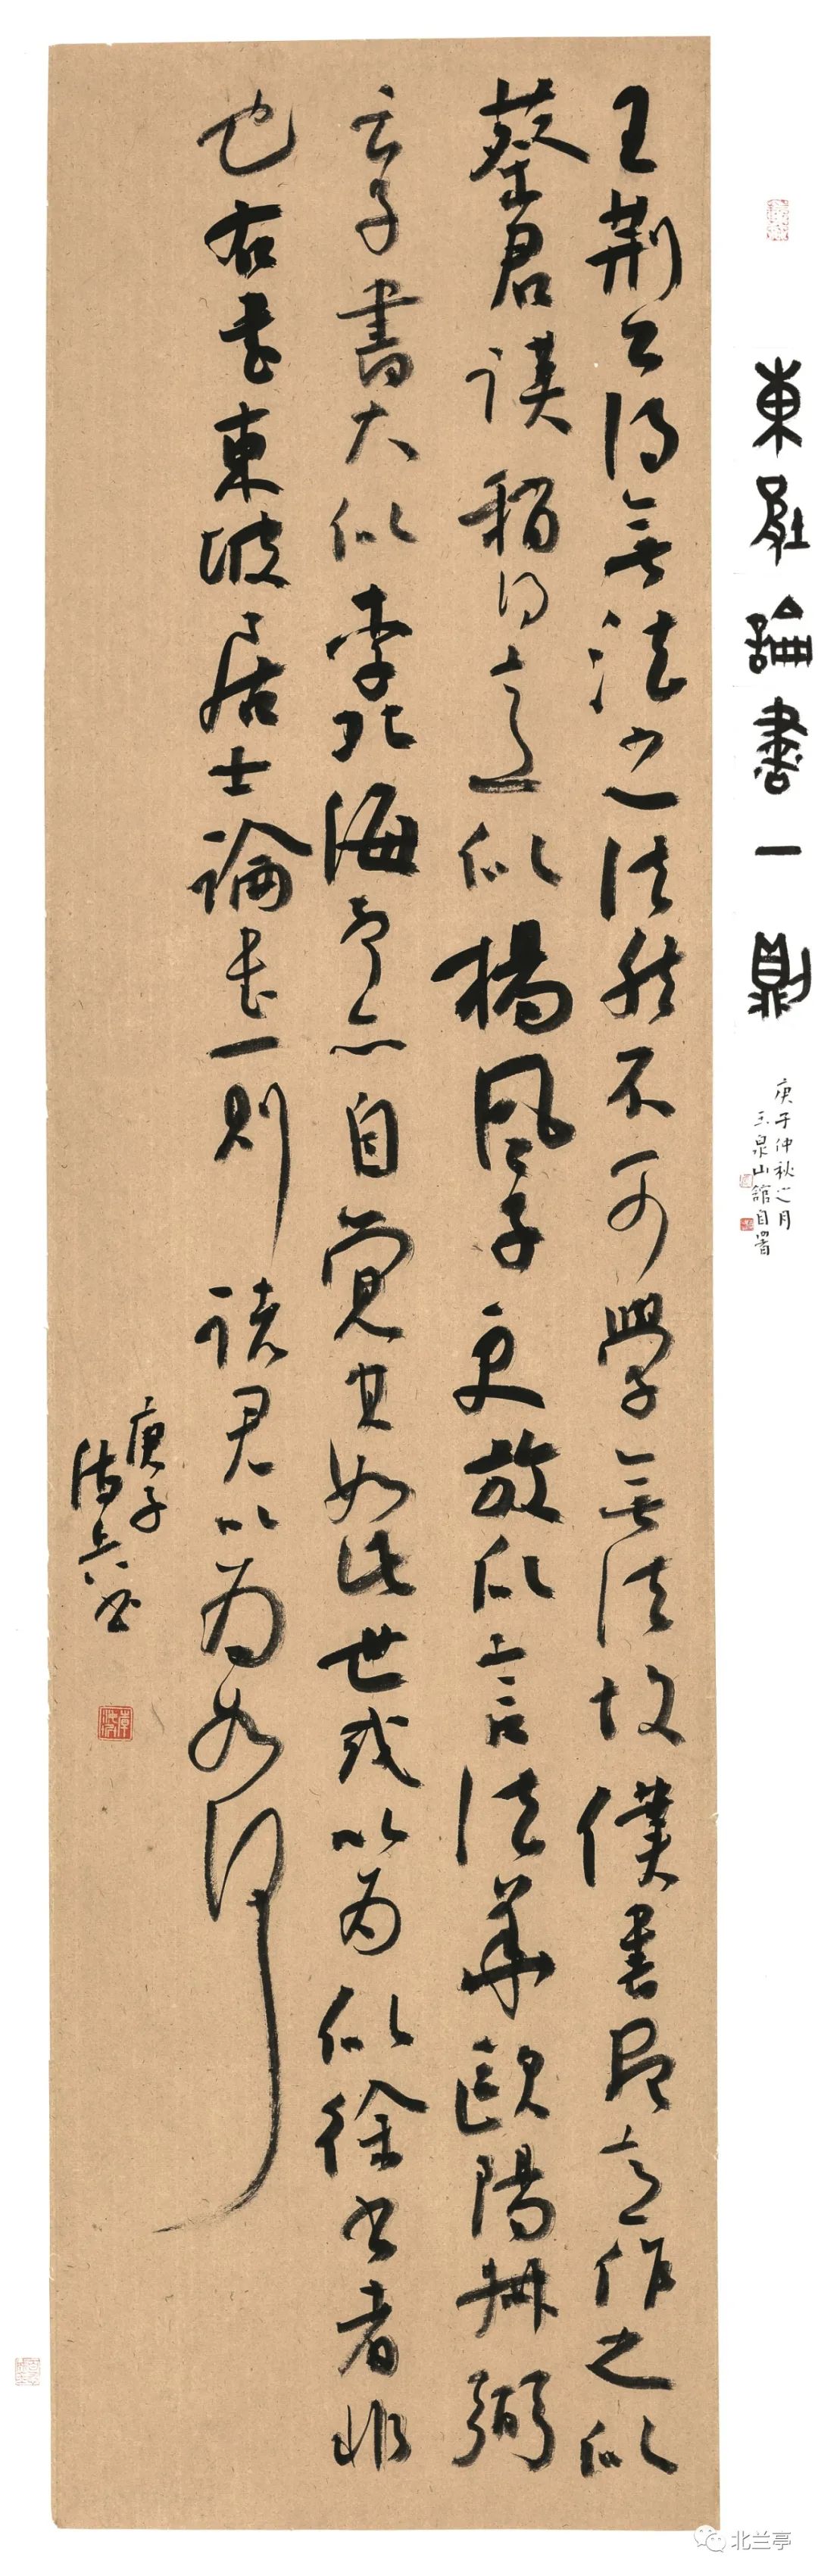 東坡論書一則
庚子仲秋之月
玉泉山館自署
王荆公得無法之法然不可學無法故僕書盡意作之似
蔡君謨稍得意似楊風子更放似言法華歐陽叔弼
云子書大似李北海予亦自覺其如此世或以為似徐書者非
也右書東坡居士論書一則諸君以為如何
庚子
北兰亭